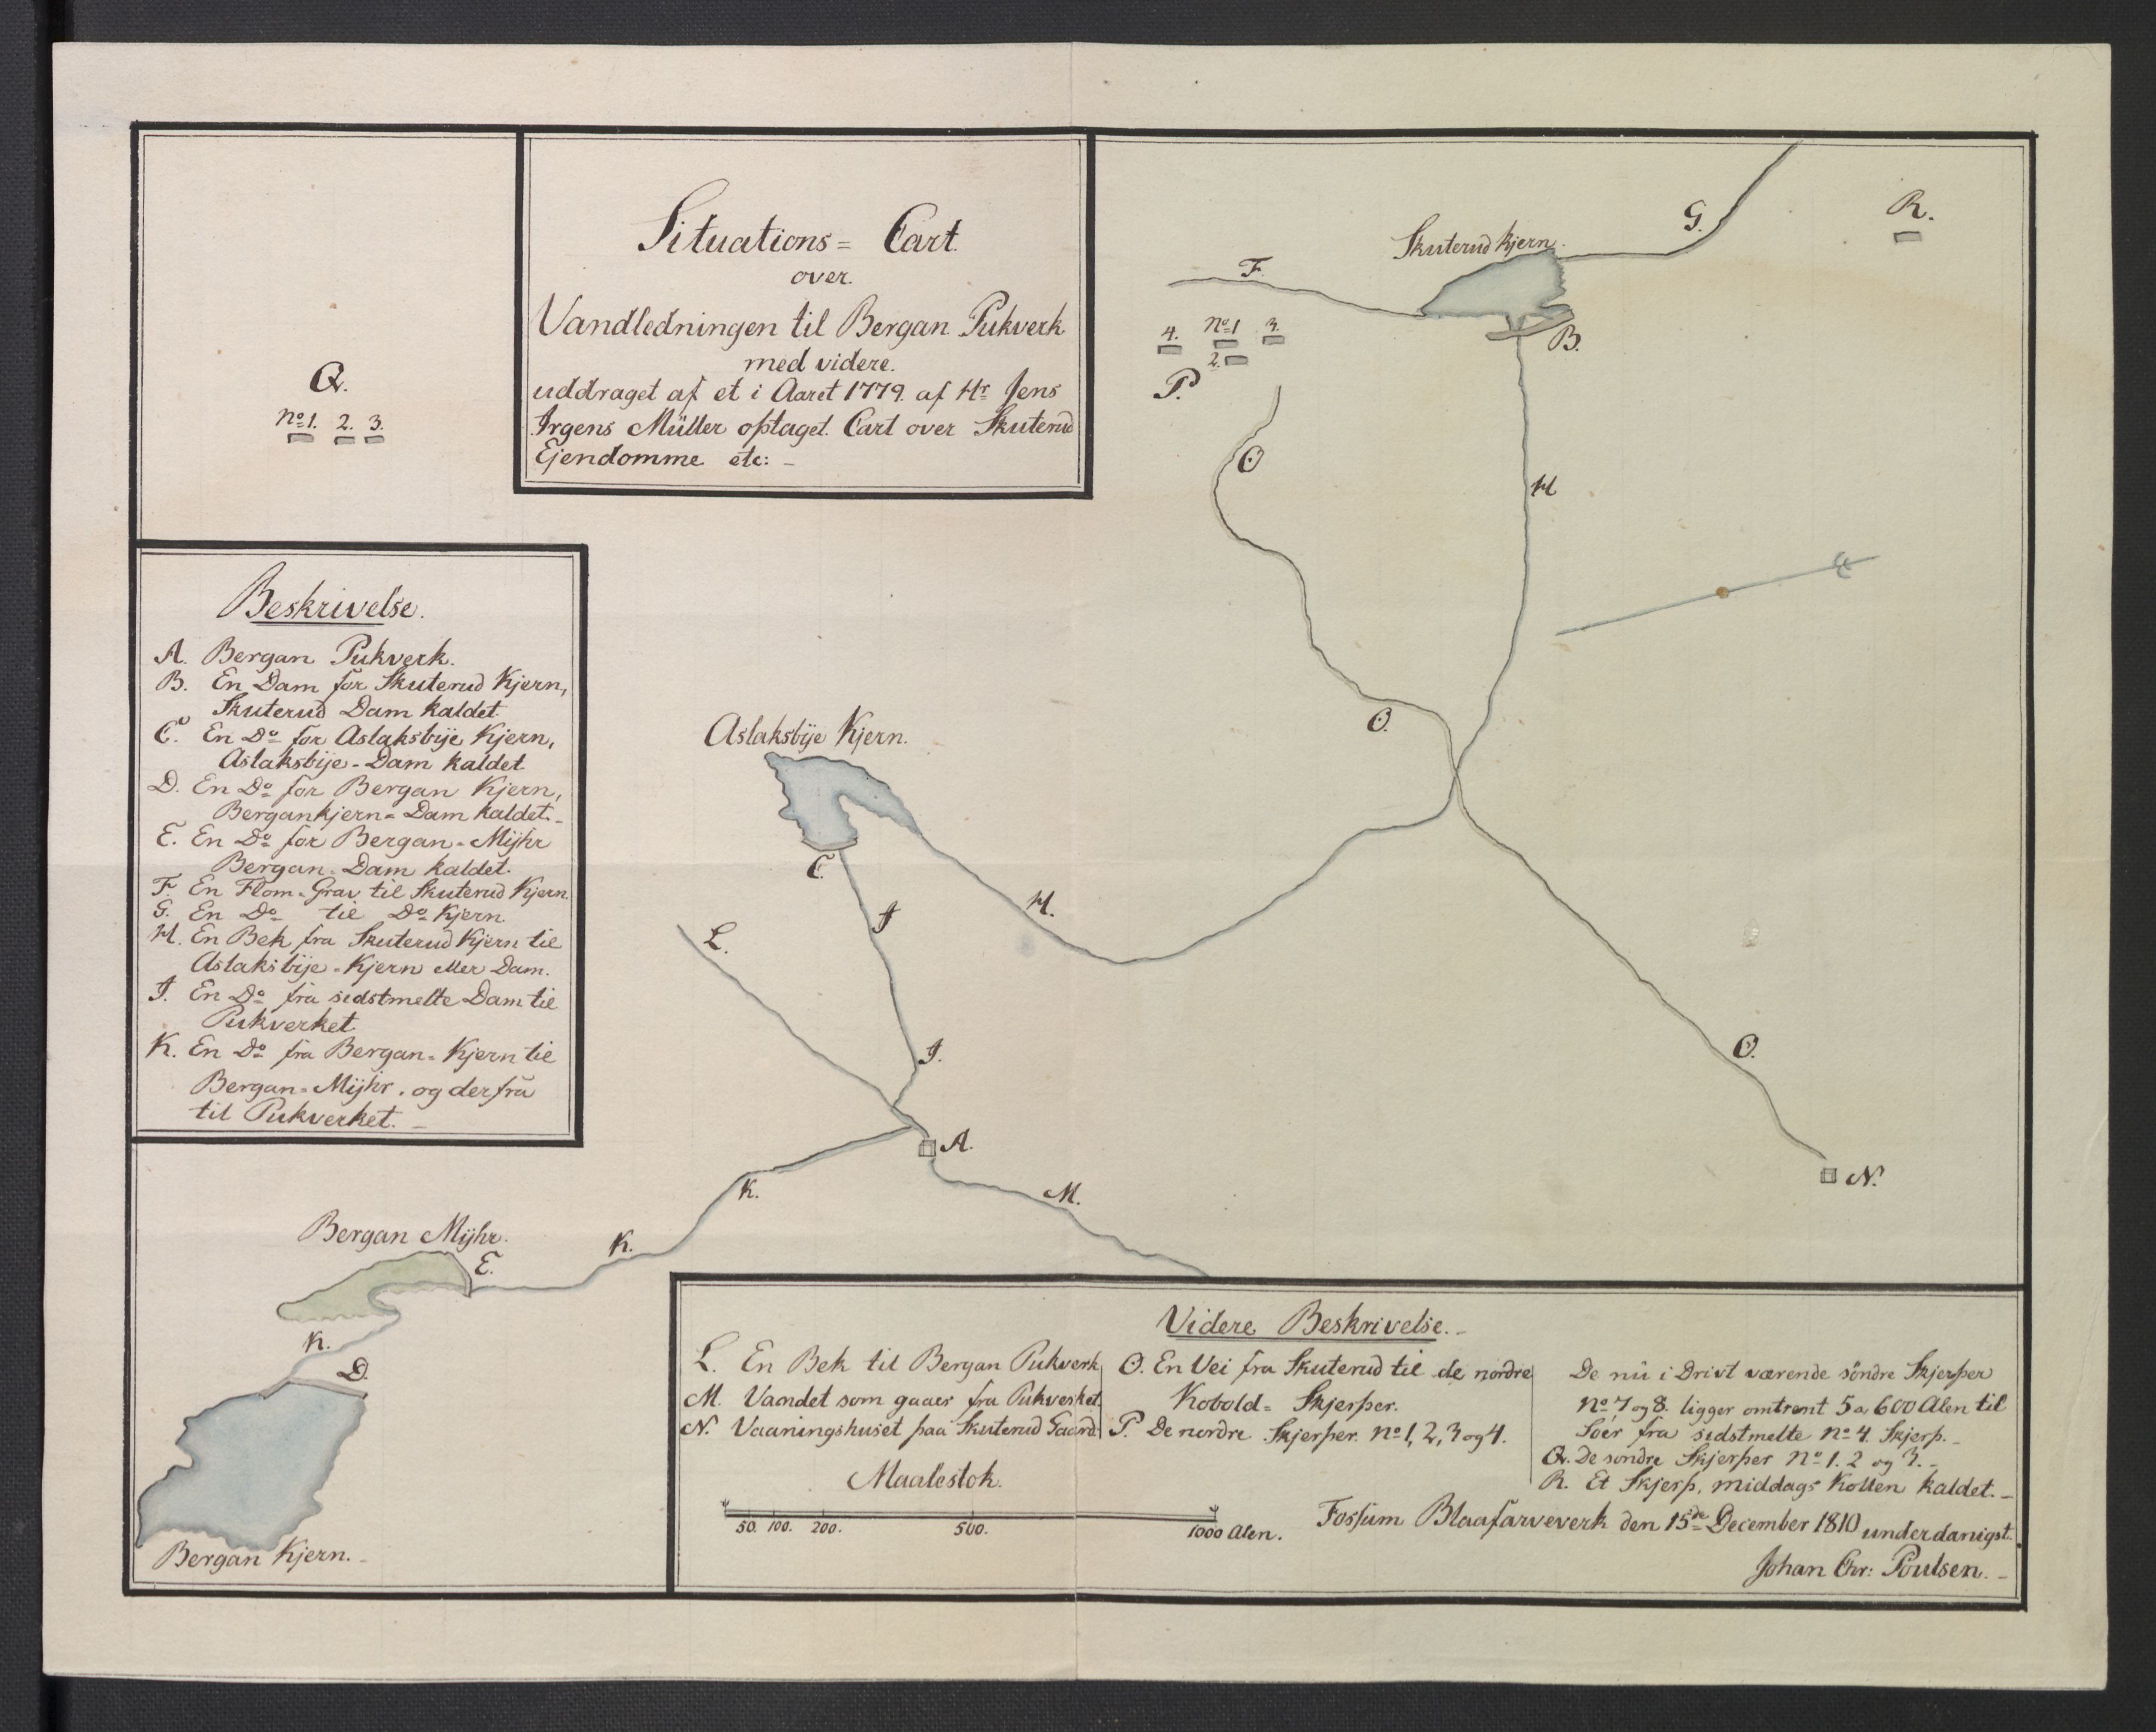 Situations= Cart.
over.
Vandledningen til Bergan Pukverk.
med videre.
uddraget af et i Aaret 1779. af Hr Jens
Irgens Müller optaget. Cart over Skuterud
Ejendomme etc: -
Q.
No 1. 2. 3.
Skuterud kjern.
G.
R.
F.
B.
4. No 1 3.
2.
P.
O
H
Beskrivelse.
A. Bergan Pukverk.
B. En Dam for Skuterud Kjern,
Skuterud Dam kaldet.
C. En Do for Aslaksbije Kjern,
Aslaksbije-Dam kaldet
D. En Do for Bergan Kjern,
Bergankjern= Dam kaldet.-
E. En Do for Bergan-Mijhr
Bergan-Dam kaldet.
F. En Flom-Grav til Skuterud Kjern.
G. En Do til Do Kjern
H. En Bek fra Skuterud Kjern til
Aslaksbije-Kjern eller Dam.
J. En Do fra sidstmelte Dam til
Pukverket
K. En Do fra Bergan= Kjern til
Bergan=Mijhr. og derfra
til Pukverket. -
Aslaksbije Kjern.
O.
C.
H.
J
L.
J.
O.
A.
N.
K.
M.
K.
Bergan Mijhr.
E.
K.
D.
Bergan Kjern.-
Videre Beskrivelse.-
L. En Bek til Bergan Pukverk
M. Vandet som gaaer fra Pukverket.
N. Vaaningshuset paa Skuterud Gaard.
O. En Vei fra Skuterud til de nordre
Kobold= Skjerper.
P. De nordre Skjerper. No 1, 2, 3 og 4.
De nu i Drivt værende söndre Skjerper
No 7 og 8. ligger omtrent 5 a 600 Alen til
Söer fra sidstmelte No 4. Skjerp.-
Q. De söndre Skjerper No 1. 2 og 3.-
R. Et Skjerp, middags-Kollen kaldet.-
Maalestok.
50. 100. 200. 500. 1000 Alen.
Fossum Blaafarveverk den 15de December 1810 underdanigst.
Johan Chr: Poulsen.-